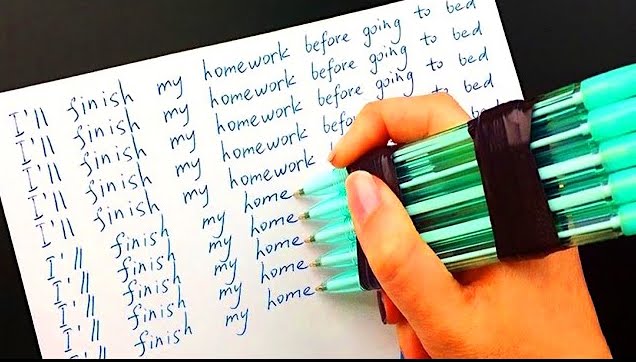 I'll finish my homework before going to bed
I'll finish my homework before going to bed
I'll finish my homework before going to bed
I'll finish my homework befor bed
I'll finish my homework
I'll finish my home
I'll finish my home
I'll finish my home
I'll finish my home
I'll finish my home